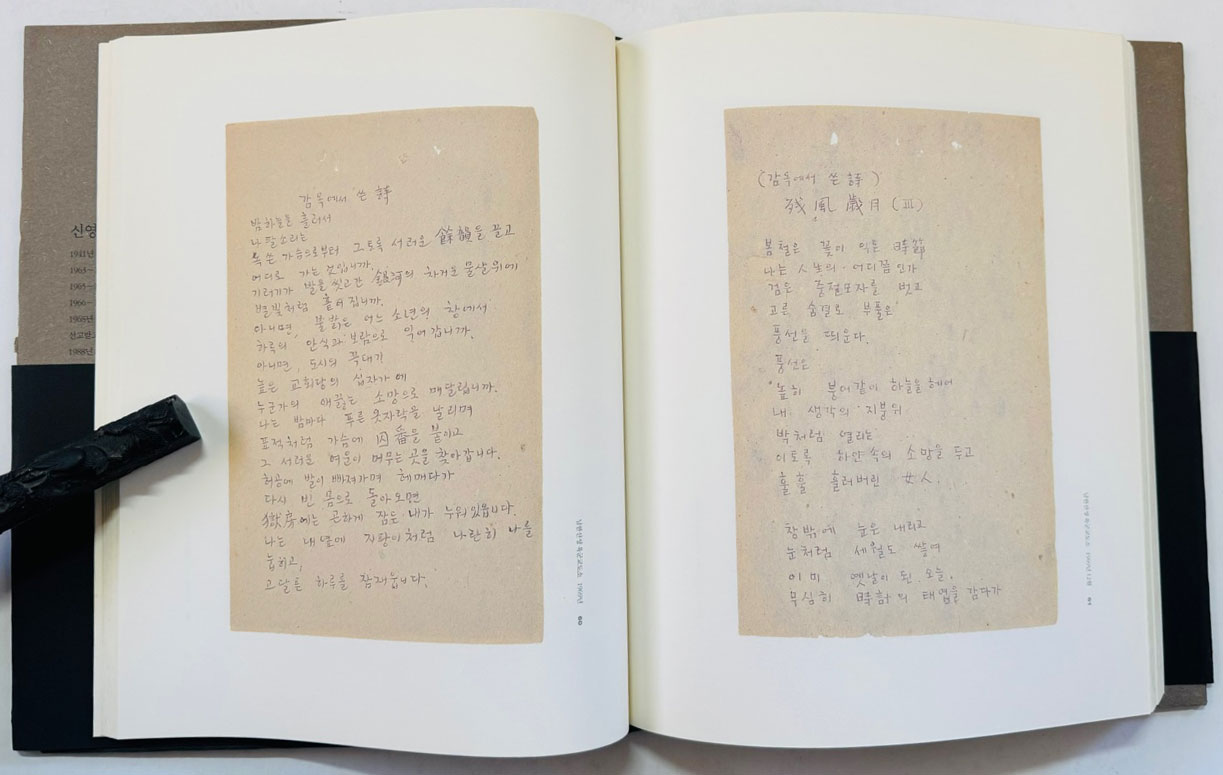 신영
1941년
1963—
1965—
1966—
1968년
선고받고
1988년
감옥에서 쓴 詩
밤하늘을 흘러서
나팔소리는
목 쉰 가슴으로부터 그토록 서러운 餘韻을 끌고
어디로 가는 것입니까.
기러기가 발을 씻고간 銀河의 차거운 물살위에
별빛처럼 흩어집니까.
아니면, 불밝은 어느 소년의 창에서
하루의 안식과 보람으로 익어갑니까.
아니면, 도시의 꼭대기
높은 교회당의 십자가에
누군가의 애끓는 소망으로 매달립니까.
나는 밤마다 푸른 옷자락을 날리며
표적처럼 가슴에 囚番을 붙이고
그 서러운 여운이 머무는 곳을 찾아갑니다.
허공에 발이 빠져가며 헤매다가
다시 빈 몸으로 돌아오면
獄房에는 곤하게 잠든 내가 누워있읍니다.
나는 내 옆에 지팡이처럼 나란히 나를
눕히고,
고달픈 하루를 잠재웁니다.
남한산성 육군교도소 1969년
60
(감옥에서 쓴 詩)
残風歲月(Ⅲ)
봄철은 꽃이 익은 時節
나는 人生의 어디쯤인가
검은 중절모자를 벗고
고른 숨결로 부풀은
풍선을 띄운다.
풍선은
높히 붕어같이 하늘을 헤어
내 생각의 지붕위
박처럼 열리는
이토록 하얀 속의 소망을 두고
훌훌 흘러버린 女人.
창밖에 눈은 내리고
눈처럼 세월도 쌓여
이미 옛날이 된 오늘,
무심히 時計의 태엽을 감다가
남한산성 육군교도소 1969년 12월
61